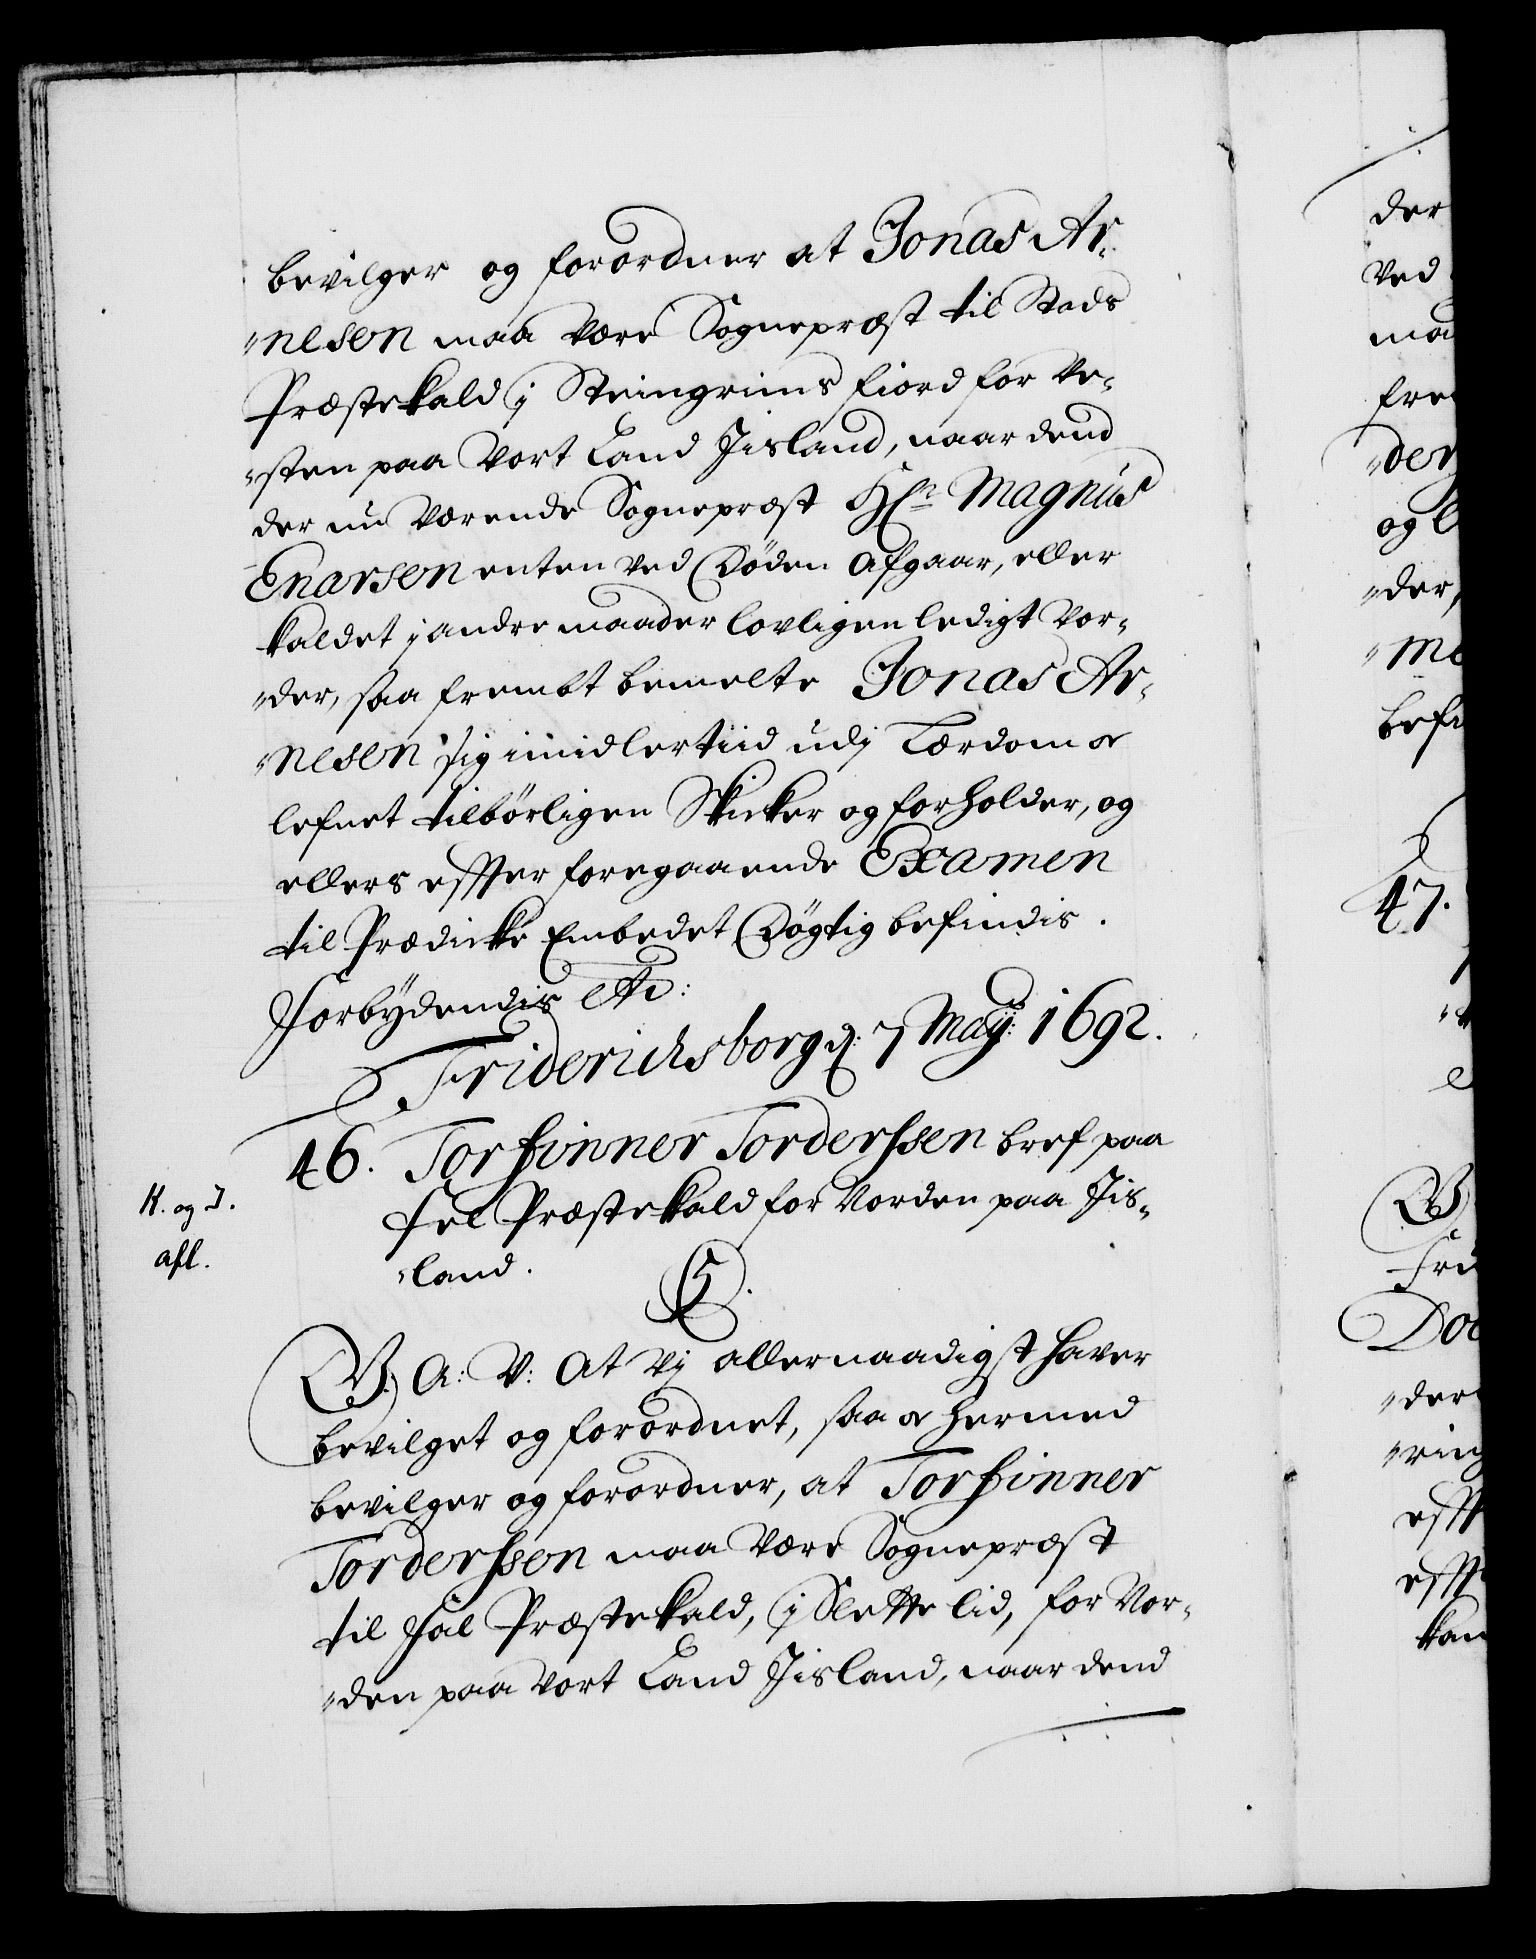 bevilger og forordner at Jonas Ar-
nesen maa være Sognepræst til Stads
Præstekald j Steingrims fiord for Ve-
sten paa Vort Land Jisland, naar dend
der nu værende Sognepræst Hr. Magnus
Enarsen enten ved Døden afgaar, eller
kaldet j andre maader lovligen ledigt vor-
der, saa frembt bemelte Jonas Ar-
nesen sig imidlertiid udj Lærdom oc
lefnet tilbørligen Skicker og forholder, og
ellers effter foregaaende Examen
til Prædicke Embedet Døgtig befindis.
Forbÿdendis etc:
Friderichsborg d: 7 Maÿ: 1692.
46. Torfinner Torderssen bref paa
Fel Præstekald for Norden paa Jis-
K. og I.
land.
afl.
C5.
G. A: V: At Vj allernaadigst hafver
bevilget og forordnet, saa oc hermed
bevilger og forordner, at Torfinner
Torderssen maa være Sognepræst
til Fäl Præstekald, j Slette lid, for Nor-
den paa Vort Land Jisland, naar dend
der
Ved
maa
der
og
der,
befi
47.
G
der
ring
kan